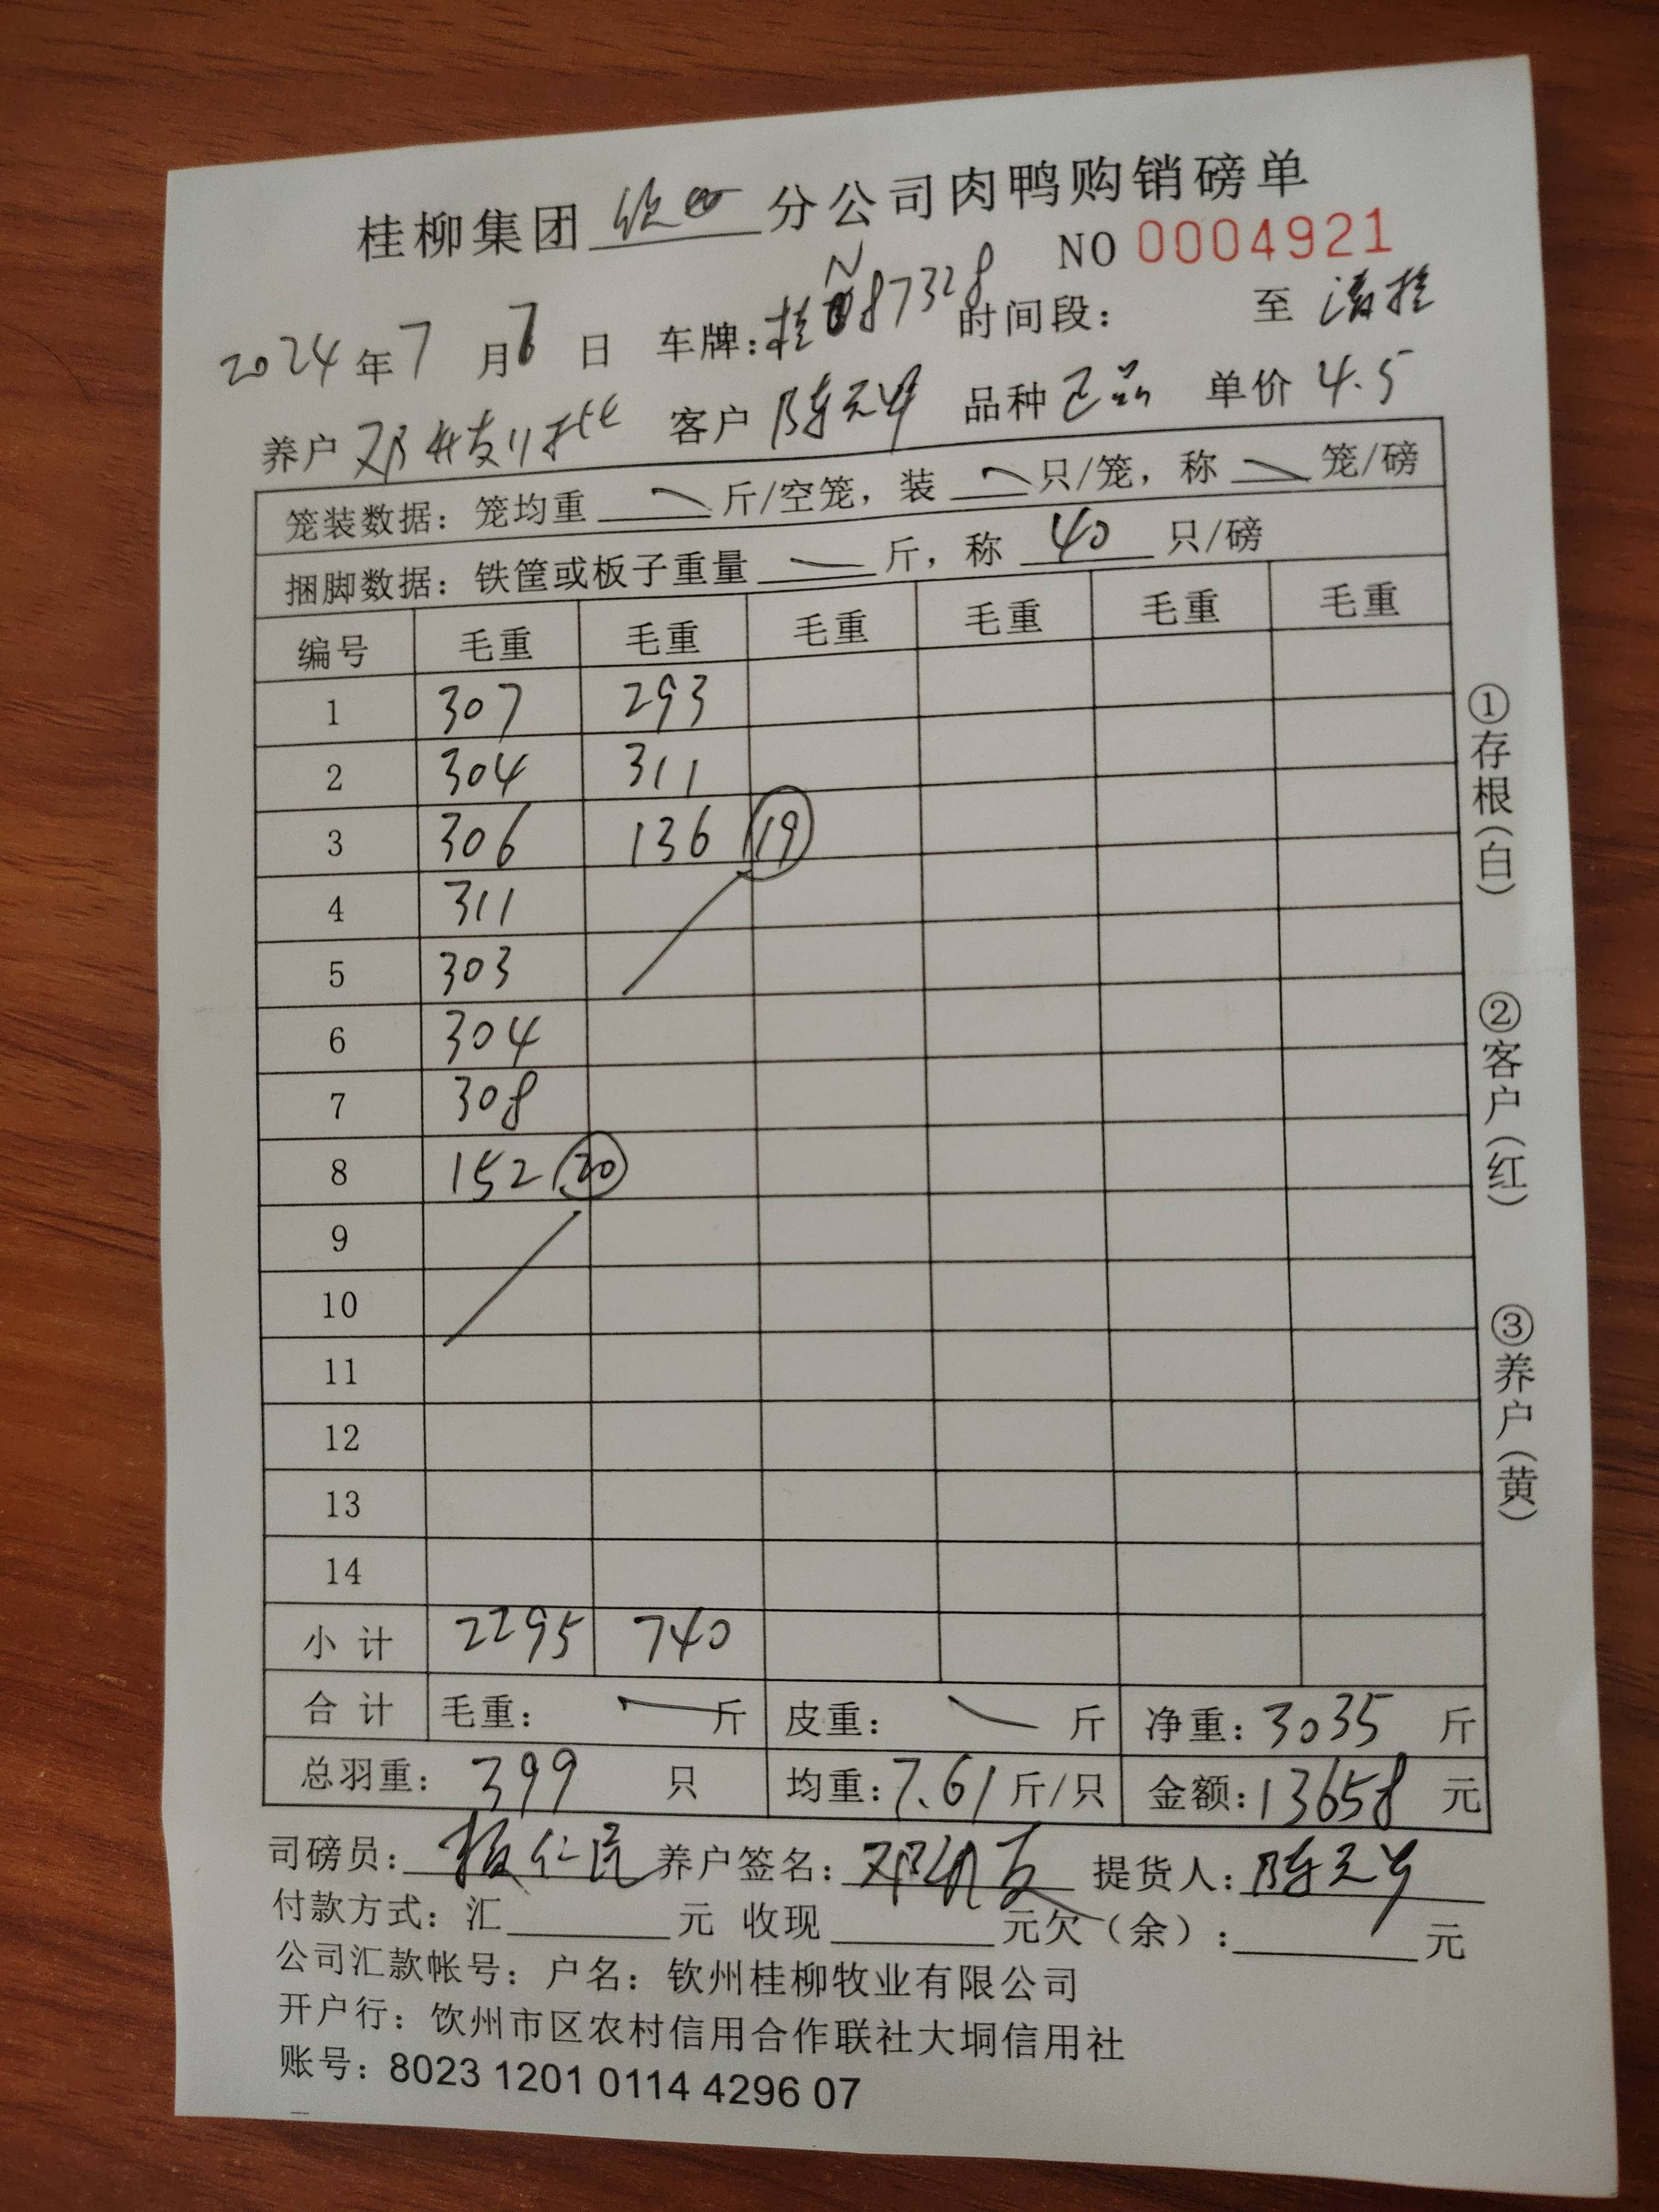 桂柳集团 钦四 分公司肉鸭购销磅单
NO 0004921
2024年7月 日 车牌:桂N87328 时间段: 至
养户 客户 陈元 品种 正品 单价 4.5
笼装数据: 笼均重 斤/空笼, 装 只/笼, 称 笼/磅
捆脚数据: 铁筐或板子重量 斤, 称 40 只/磅
编号 毛重 毛重 毛重 毛重 毛重 毛重
1 307 293
2 304 311
3 306 136 19
4 311
5 303
6 304
7 308
8 152 20
9
10
11
12
13
14
小计 2295 740
合计 毛重: 斤 皮重: 斤 净重: 3035 斤
总羽重: 399 只 均重: 7.61 斤/只 金额: 13658 元
司磅员: 养户签名: 提货人: 陈元
付款方式: 汇 元 收现 元欠(余): 元
公司汇款帐号: 户名: 钦州桂柳牧业有限公司
开户行: 饮州市区农村信用合作联社大垌信用社
账号: 8023 1201 0114 4296 07
①存根(白) ②客户(红) ③养户(黄)